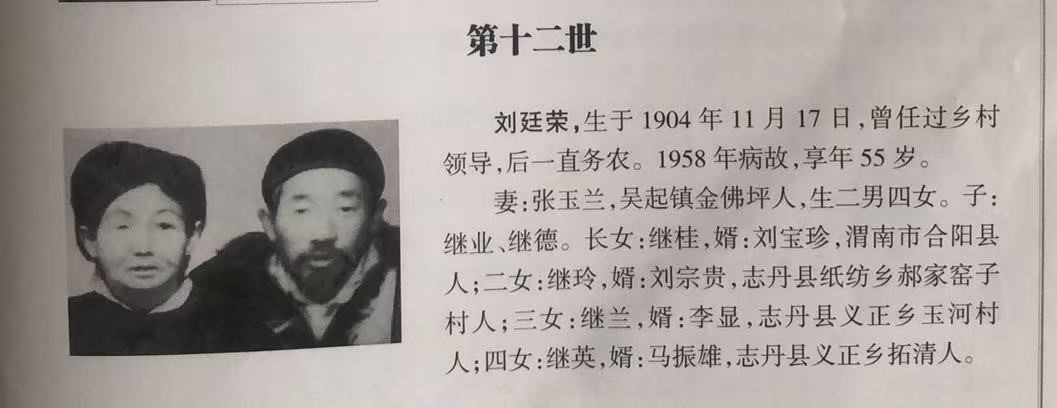 第十二世
刘廷荣，生于1904年11月17日，曾任过乡村
领导，后一直务农。1958年病故，享年55岁。
妻：张玉兰，吴起镇金佛坪人，生二男四女。子：
继业、继德。长女：继桂，婿：刘宝珍，渭南市合阳县
人；二女：继玲，婿：刘宗贵，志丹县纸纺乡郝家窑子
村人；三女：继兰，婿：李显，志丹县义正乡玉河村
人；四女：继英，婿：马振雄，志丹县义正乡拓清人。